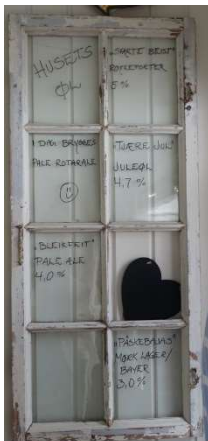 HUSETS
ØL
"SVARTE BEIST"
RØYKEPORTER
5 %
I DAG BRYGGES
PALE ROTARALE
"TVÆRE JUL"
JULEØL
4,7 %
"BLEIKFEIT"
PALE ALE
4,0 %
"PÅSKEBAJAS"
MØRK LAGER/
BAYER
3,0 %